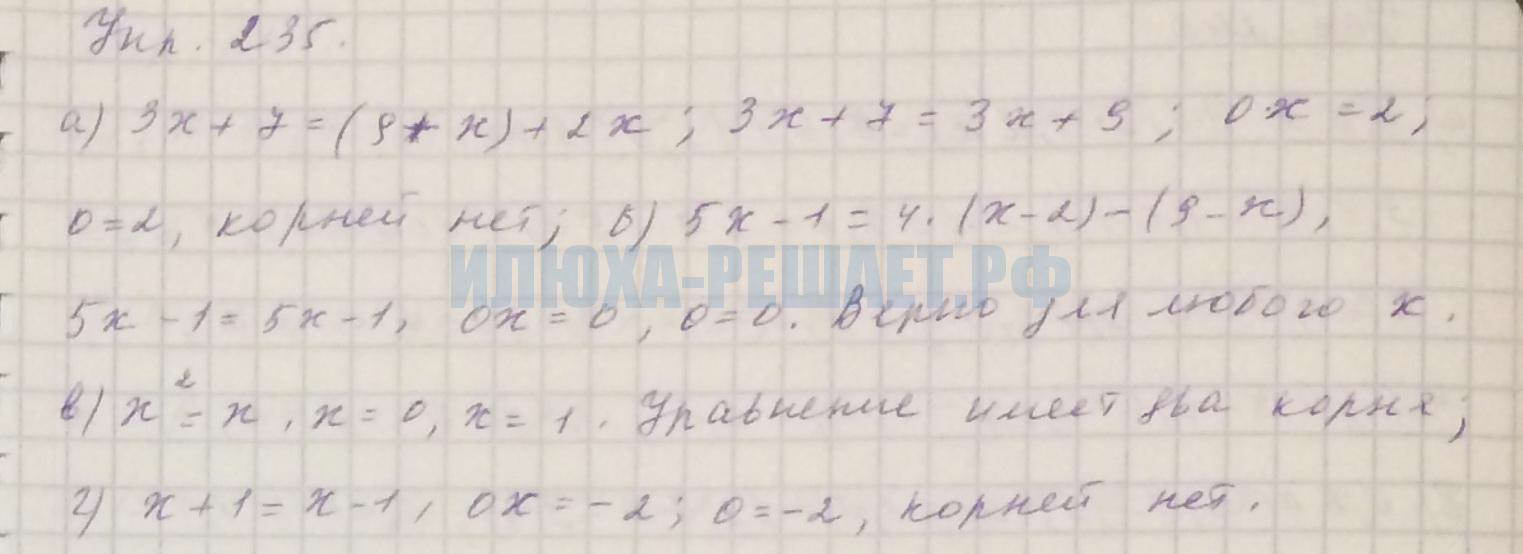 Упр. 235.
а) 3х + 7 = (9 + х) + 2х ; 3х + 7 = 3х + 9 ; 0х = 2 ;
0 = 2, корней нет; б) 5х - 1 = 4 · (х - 2) - (9 - х),
ИЛЮХА-РЕШАЕТ.РФ
5х - 1 = 5х - 1, 0х = 0, 0 = 0. Верно для любого х.
в) х² = х, х = 0, х = 1. Уравнение имеет два корня;
г) х + 1 = х - 1, 0х = -2; 0 = -2, корней нет.